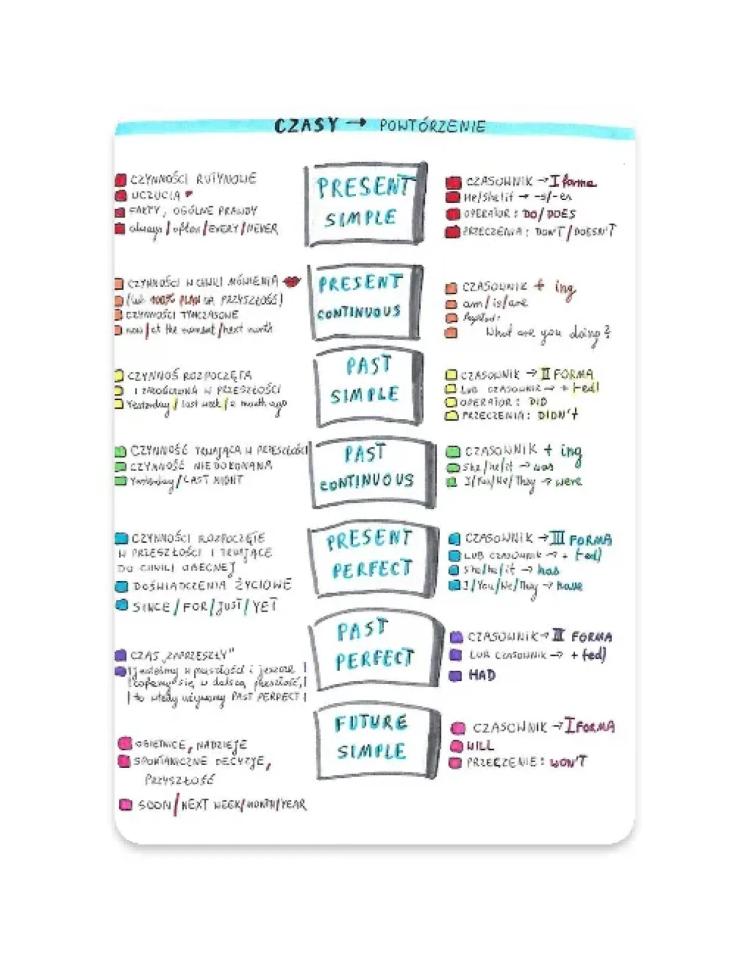 CZASY → POWTÓRZENIE
CZYNNOŚCI RUTYNOWE
UCZUCIA
FAKTY, OGÓLNE PRAWDY
always/often/EVERY/NEVER
PRESENT
SIMPLE
CZASOWNIK → I forma
He/She/it → -s/-es
OPERATOR: DO/DOES
PRZECZENIA: DON'T/DOESN'T
CZYNNOŚCI W CHWILI MÓWIENIA
(lub 100% PLAN NA PRZYSZŁOŚĆ)
CZYNNOŚCI TYMCZASOWE
now/at the moment/next month
PRESENT
CONTINUOUS
CZASOWNIK + ing
am/is/are
What are you doing?
CZYNNOŚĆ ROZPOCZĘTA
I ZAKOŃCZONA W PRZESZŁOŚCI
Yesterday/last week/a month ago
PAST
SIMPLE
CZASOWNIK → II FORMA
LUB CZASOWNIK → + (ed)
OPERATOR: DID
PRZECZENIA: DIDN'T
CZYNNOŚĆ TRWAJĄCA W PRZESZŁOŚCI
CZYNNOŚĆ NIEDOKONANA
Yesterday/LAST NIGHT
PAST
CONTINUOUS
CZASOWNIK + ing
She/he/it → was
I/You/We/They → were
CZYNNOŚCI ROZPOCZĘTE
W PRZESZŁOŚCI I TRWAJĄCE
DO CHWILI OBECNEJ
DOŚWIADCZENIA ŻYCIOWE
SINCE/FOR/JUST/YET
PRESENT
PERFECT
CZASOWNIK → III FORMA
LUB CZASOWNIK → + (ed)
She/he/it → has
I/You/We/They → have
CZAS „ZAPRZESZŁY"
jesteśmy w przeszłości i jeszcze
"cofamy" się w dalszą przeszłość,
to wtedy używamy PAST PERFECT!
PAST
PERFECT
CZASOWNIK → III FORMA
LUB CZASOWNIK → + (ed)
HAD
OBIETNICE, NADZIEJE
SPONTANICZNE DECYZJE,
PRZYSZŁOŚĆ
SOON/NEXT WEEK/MONTH/YEAR
FUTURE
SIMPLE
CZASOWNIK → I FORMA
WILL
PRZECZENIE: WON'T